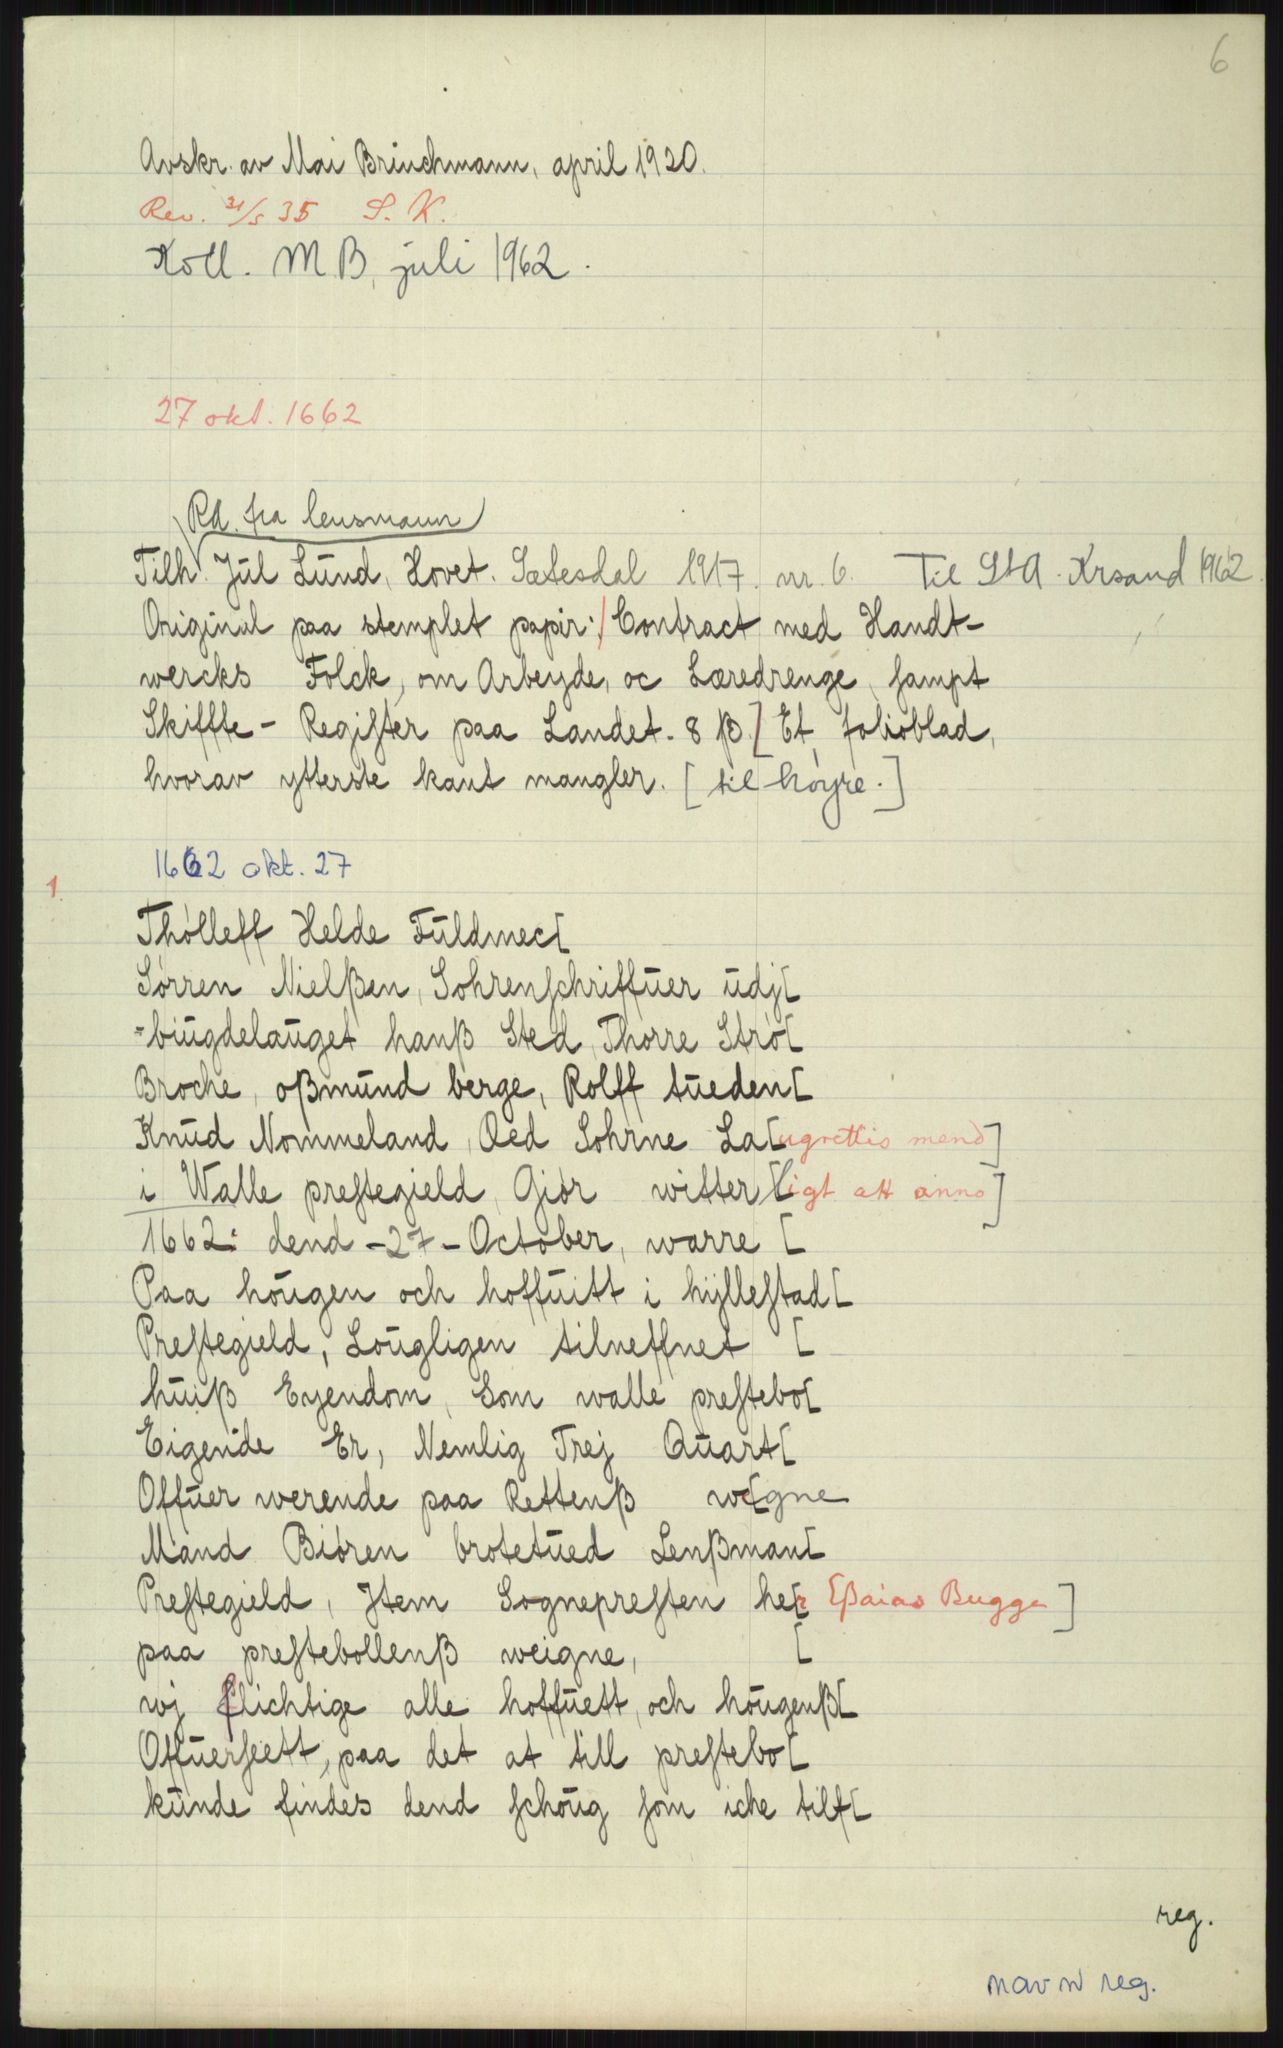 6
Avskr. av Mai Brinchmann, april 1920.
Rev. 31/5 35 S. K.
Koll. M.B, juli 1962.
27 okt. 1662
Rd. fra lensmann
Tilh. Jul Lund, Hovet. Sætesdal 1917. nr. 6. Til StA. Krsand 1962.
Original paa stemplet papir:/ Contract med Handt-
wercks Folck, om Arbeyde, oc Læredrenge, ſampt
Skiffte - Regiſter paa Landet. 8 β.] Et folioblad,
hvorav ytterste kant mangler. [til høyre.]
1662 okt. 27
1.
Thölleff Helde Fuldmec[
Sörren Nielßen, Sohrenſchriffuer udj[
=biugdelauget hanß Sted, Thorre Strö[
Broche, oßmund berge, Rolff tueden[
Knud Nommeland, Oed Sohrne La[ugrettis mend]
i Walle preſtegield, Giör witter[ligt att anno]
1662: dend -27- October, warre [
Paa höugen och hoffuitt i hÿlleſtad[
Preſtegield, Lougligen tilneffnet [
huiß Eyendom, Som walle preſtebo[
Eigende Er, Nemlig Trej Quart[
Offuer werende paa Rettenß we[gne
Mand Biören brotetued Lenßman[
Preſtegield, Item Sognepreſten he[r Eßaias Bugge]
paa preſtebollenß weigne, [
wj flichtige alle hoffuett, och höugenß[
Offuerſeett, paa det at till preſtebo[
kunde findes dend ſchoug ſom iche tilſt[
reg.
navn reg.